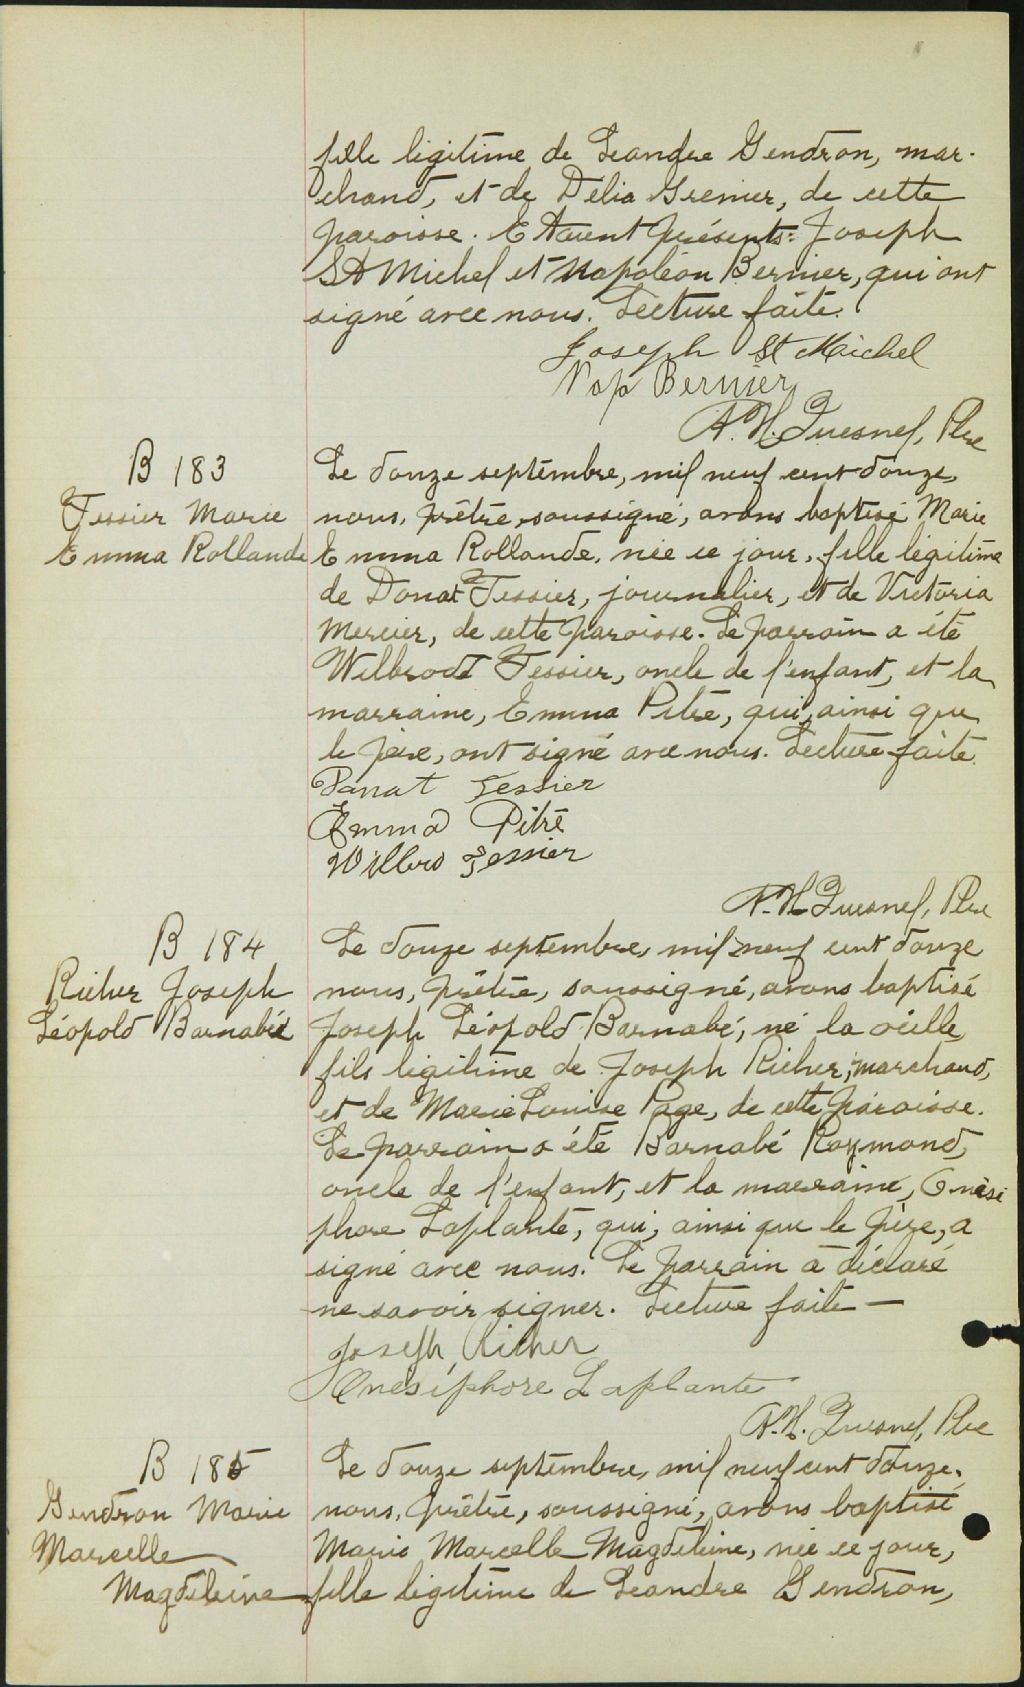 fille légitime de Leandre Gendron, mar-
chand, et de Délia Grenier, de cette
paroisse. Etaient présents: Joseph
St Michel et Napoléon Bernier, qui ont
signé avec nous. Lecture faite.
Joseph St Michel
Nap Bernier
A.H. Quesnel, Ptre
B 183
Tessier Marie
Emma Rollande
Le douze septembre, mil neuf cent douze,
nous, prêtre, soussigné, avons baptisé Marie
Emma Rollande, née ce jour, fille légitime
de Donat Tessier, journalier, et de Victoria
Mercier, de cette paroisse. Le parrain a été
Wilbrod Tessier, oncle de l'enfant, et la
marraine, Emma Pitre, qui, ainsi que
le père, ont signé avec nous. Lecture faite.
Donat Tessier
Emma Pitre
Willbro Tessier
A.H. Quesnel, Ptre
B 184
Richer Joseph
Léopold Barnabé
Le douze septembre, mil neuf cent douze
nous, prêtre, soussigné, avons baptisé
Joseph Léopold Barnabé, né la veille,
fils légitime de Joseph Richer, marchand,
et de Marie Louise Page, de cette paroisse.
Le parrain a été Barnabé Raymond,
oncle de l'enfant, et la marraine, Onési
phore Laplante, qui, ainsi que le père, a
signé avec nous. Le parrain a déclaré
ne savoir signer. Lecture faite —
Joseph Richer
Onésiphore Laplante
A.H. Quesnel, Ptre
B 185
Gendron Marie
Marcelle
Magdeleine
Le douze septembre, mil neuf cent douze,
nous, prêtre, soussigné, avons baptisé
Marie Marcelle Magdeleine, née ce jour,
fille légitime de Leandre Gendron,